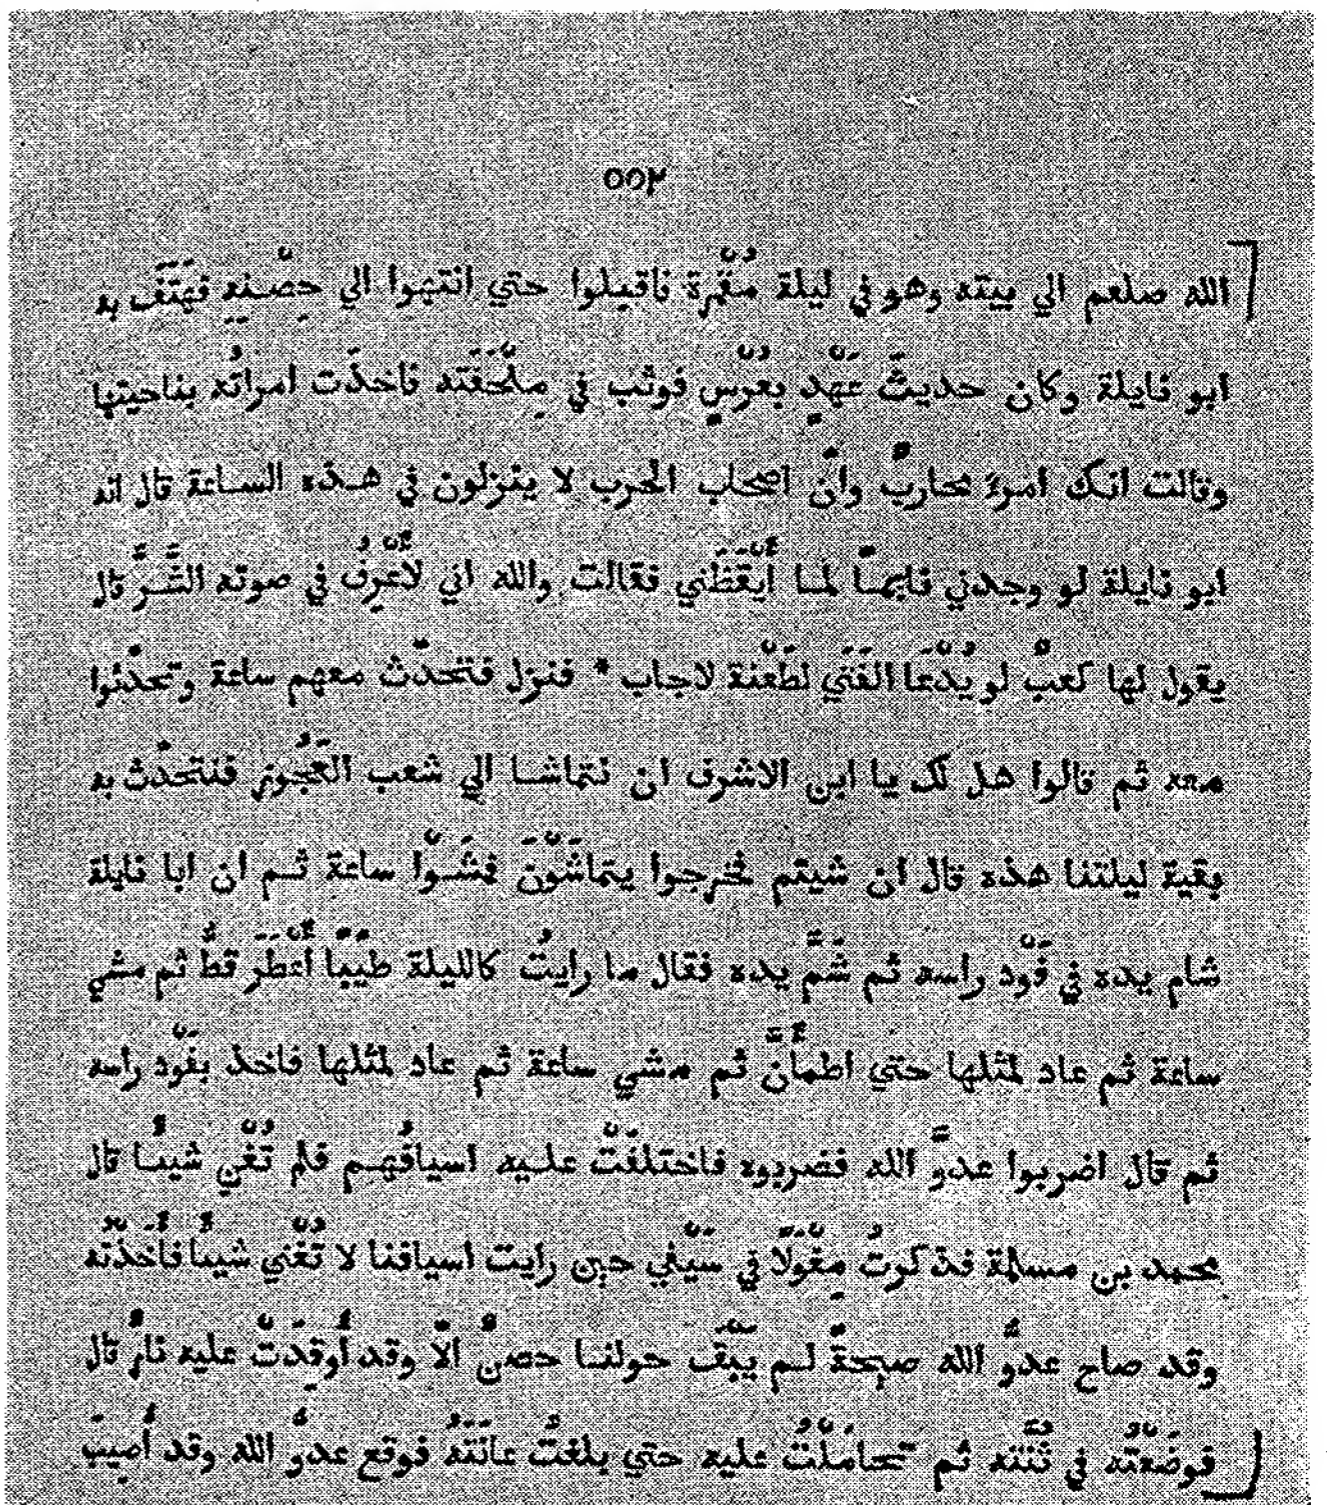 ٥٥٢
الله صلعم الي بيته وهو في ليلة مُقْمِرة فاقبلوا حتي انتهوا الي حِصْنِهِ فهَتَفَ به
ابو نايلة وكان حديثَ عَهْدٍ بعُرْسٍ فوثب في مِلْحَفَته فاخذَت امراتُه بناحيتها
وقالت انك امرءٌ محاربٌ وانّ اصحاب الحرب لا ينزلون في هذه الساعة قال انه
ابو نايلة لو وجدني نايمًا لما أَيْقَظَني فقالت والله اني لَأَعْرِفُ في صوته الشَّرَّ قال
يقول لها كعبٌ لو يُدْعَا الفَتَي لطَعْنة لاجاب * فنزل فتحدّث معهم ساعة وتحدّثوا
معه ثم قالوا هل لك يا ابن الاشرف ان نتماشا الي شعب العَجُوز فنتحدّث به
بقية ليلتنا هذه قال ان شيتم فخرجوا يتماشَوْنَ فمشَوْا ساعة ثم ان ابا نايلة
شام يده في فَوْد راسه ثم شَمَّ يده فقال ما رايتُ كالليلة طيبًا أَعْطَرَ قطُّ ثم مشي
ساعة ثم عاد لمثلها حتي اطمأَنَّ ثم مشي ساعة ثم عاد لمثلها فاخذ بفَوْد راسه
ثم قال اضربوا عدوَّ الله فضربوه فاختلفَتْ عليه اسيافُهم فلم تُغْنِ شيئًا قال
محمد بن مسلمة فذكرتُ مِغْوَلًا في سَيْفي حين رايت اسيافنا لا تُغْني شيئًا فأَخَذْتُه
وقد صاح عدوُّ الله صيحةً لم يَبْقَ حولنا حصنٌ الّا وقد أُوقِدَتْ عليه نارٌ قال
فوضَعْتُه في ثُنَّته ثم تحامَلْتُ عليه حتي بلغتُ عانَتَهُ فوقع عدوُّ الله وقد أُصيبَ